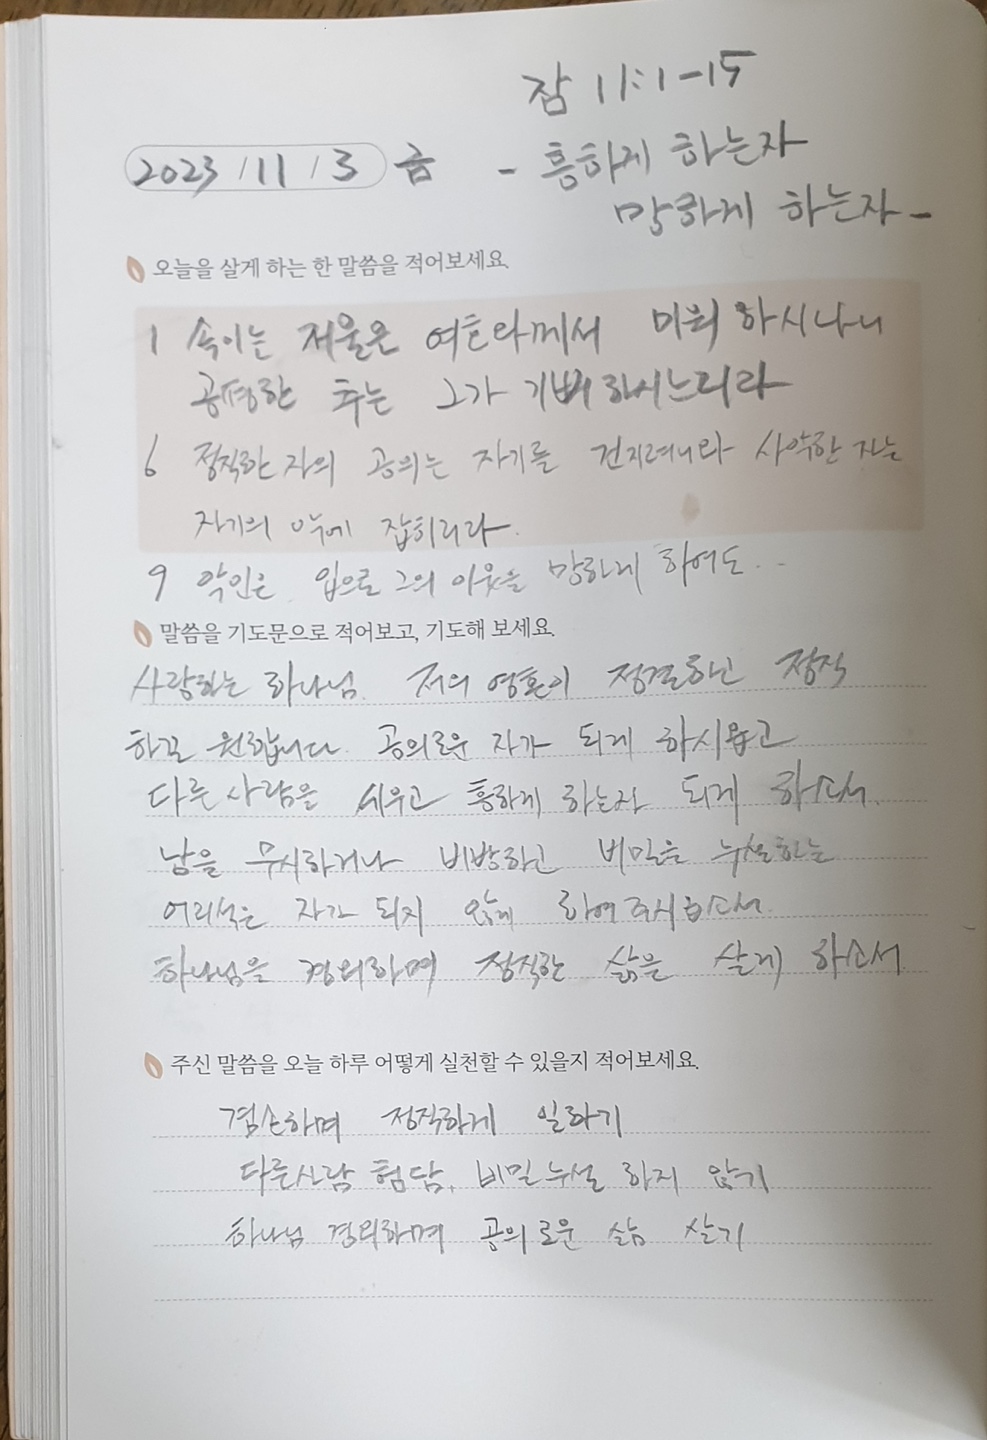 잠 11:1-15
2023/11/3 금 - 흥하게 하는자
망하게 하는자-
오늘을 살게 하는 한 말씀을 적어보세요.
1 속이는 저울은 여호와께서 미워 하시나니
공평한 추는 그가 기뻐하시느니라
6 정직한 자의 공의는 자기를 건지려니와 사악한 자는
자기의 악에 잡히리라.
9 악인은 입으로 그의 이웃을 망하게 하여도..
말씀을 기도문으로 적어보고, 기도해 보세요.
사랑하는 하나님. 저의 영혼이 정결하고 정직
하길 원합니다. 공의로운 자가 되게 하시옵고
다른 사람을 세우고 흥하게 하는자 되게 하소서.
남을 무시하거나 비방하고 비밀을 누설하는
어리석은 자가 되지 않게 하여주시옵소서.
하나님을 경외하며 정직한 삶을 살게 하소서
주신 말씀을 오늘 하루 어떻게 실천할 수 있을지 적어보세요.
겸손하며 정직하게 일하기
다른사람 험담, 비밀누설 하지 않기
하나님 경외하며 공의로운 삶 살기